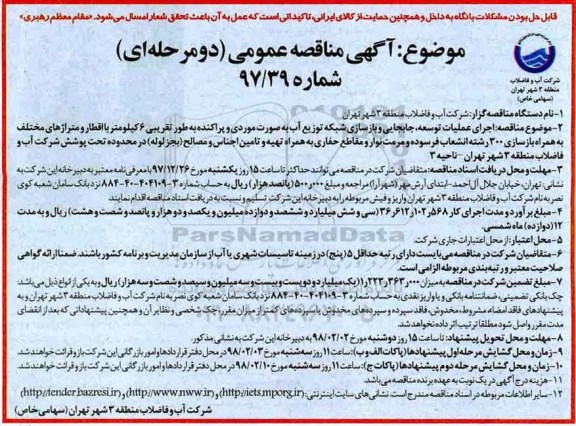 قابل حل بودن مشکلات با نگاه به داخل و همچنین حمایت از کالای ایرانی، تاکیداتی است که عمل به آن باعث تحقق شعار امسال می‌شود. «مقام معظم رهبری»
موضوع: آگهی مناقصه عمومی (دو مرحله‌ای)
شماره ۹۷/۳۹
شرکت آب و فاضلاب
منطقه ۳ شهر تهران
(سهامی خاص)
۱- نام دستگاه مناقصه گزار: شرکت آب و فاضلاب منطقه ۳ شهر تهران
۲- موضوع مناقصه: اجرای عملیات توسعه، جابجایی و بازسازی شبکه توزیع آب به صورت موردی و پراکنده به طور تقریبی ۶ کیلومتر با اقطار و متراژهای مختلف
به همراه بازسازی ۳۰۰ رشته انشعاب فرسوده و مرمت نوار و مقاطع حفاری به همراه تهیه و تامین اجناس و مصالح (بجز لوله) در محدوده تحت پوشش شرکت آب و
فاضلاب منطقه ۳ شهر تهران - ناحیه ۳
۳- مهلت و محل دریافت اسناد مناقصه: متقاضیان شرکت در مناقصه می‌توانند حداکثر تا ساعت ۱۵ روز یکشنبه مورخ ۹۷/۱۲/۲۶ با معرفی نامه معتبر به دبیرخانه این شرکت به
نشانی: تهران، خیابان جلال آل احمد- ابتدای آرش مهر (شهرآرا) مراجعه و مبلغ ۵۰۰٫۰۰۰ (پانصد هزار) ریال به حساب شماره ۳-۴۰۴۱۰۹-۴۰-۸۸۴ نزد بانک سامان شعبه کوی
نصر به نام شرکت آب و فاضلاب منطقه ۳ شهر تهران واریز و فیش مربوطه را به دبیرخانه این شرکت تسلیم و نسبت به دریافت اسناد مناقصه اقدام نمایند.
۴- مبلغ برآورد و مدت اجرای کار ۳۶٫۶۱۲٫۱۰۲٫۵۶۸ (سی و شش میلیارد و ششصد و دوازده میلیون و یکصد و دو هزار و پانصد و شصت و هشت) ریال و به مدت
۱۲ (دوازده) ماه شمسی.
۵- محل اعتبار: از محل اعتبارات جاری شرکت.
۶- متقاضیان شرکت در مناقصه می‌بایست دارای رتبه حداقل ۵ (پنج) در زمینه تاسیسات شهری یا آب از سازمان مدیریت و برنامه کشور باشند. ضمنا ارائه گواهی
صلاحیت معتبر و رتبه‌بندی مربوطه الزامی است.
۷- مبلغ تضمین شرکت در مناقصه به میزان ۱٫۲۲۳٫۳۶۳٫۰۰۰ (یک میلیارد و دویست و بیست و سه میلیون و سیصد و شصت و سه هزار) ریال و به یکی از انواع ذیل می‌باشد:
چک بانکی تضمینی، ضمانتنامه بانکی و یا واریز نقدی به حساب شماره ۳-۴۰۴۱۰۹-۴۰-۸۸۴ نزد بانک سامان شعبه کوی نصر به نام شرکت آب و فاضلاب منطقه ۳ شهر تهران و به
پیشنهادهای فاقد امضاء، مشروط، مخدوش، فاقد سپرده و سپرده‌های مخدوش یا سپرده‌های کمتر از میزان مقرر، چک شخصی و نظایر آن و همچنین پیشنهاداتی که بعد از انقضای
مدت مقرر واصل شود مطلقا ترتیب اثر داده نخواهد شد.
۸- مهلت و محل تحویل پیشنهاد: تا ساعت ۱۵ روز دوشنبه مورخ ۹۸/۰۲/۰۲ به دبیرخانه این شرکت به نشانی مذکور.
۹- زمان و محل گشایش مرحله اول پیشنهادها (پاکات الف و ب): ساعت ۱۱ روز سه‌شنبه مورخ ۹۸/۰۲/۰۳ در محل دفتر قراردادها و امور بازرگانی این شرکت باز و قرائت خواهند شد.
۱۰- زمان و محل گشایش مرحله دوم پیشنهادها (پاکات ج): ساعت ۱۱ روز سه‌شنبه مورخ ۹۸/۰۲/۱۰ در محل دفتر قراردادها و امور بازرگانی این شرکت باز و قرائت خواهند شد.
۱۱- هزینه درج آگهی در یک نوبت به عهده برنده مناقصه می‌باشد.
۱۲- سایر اطلاعات مربوطه در اسناد مناقصه مندرج است. نشانی‌های سایت اینترنتی: (http://iets.mporg.ir) و (http://www.nww.ir) و (http://tender.bazresi.ir)
شرکت آب و فاضلاب منطقه ۳ شهر تهران (سهامی خاص)
ParsNamadData